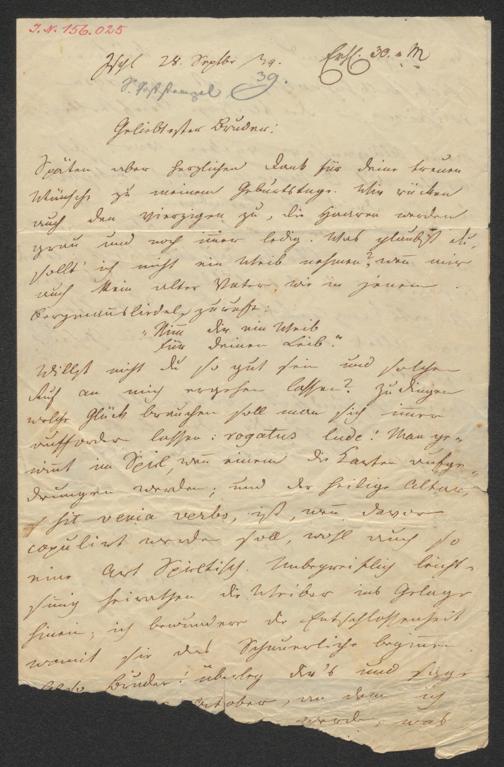 I.N. 156.025
Ischl 28. Septbr 39.
Erh. 30. M
S. Poststempel 39.
Geliebtester Bruder!
Späten aber herzlichen Dank für deine treuen
Wünsche zu meinem Geburtstage. Wir rücken
auch den Vierzigen zu, die Haare werden
grau und noch immer ledig. Was glaubst du,
sollt' ich nicht ein Weib nehmen? wenn mir
auch kein alter Vater, wie in jenem
Bergmannsliedel, zurufte:
"Nimm dir ein Weib
für deinen Leib."
Willst nicht du so gut sein und solchen
Ruf an mich ergehen lassen? Zu Dingen
welche Glück brauchen soll man sich immer
auffordern lassen: rogatus lude! Man ge-
winnt im Spiel, wenn einem die Karten aufge-
drungen werden; und der heilige Altar,
sit venia verbo, ist, wenn davor
copulirt werden soll, wohl auch so
eine Art Spieltisch. Unbegreiflich leicht-
sinnig heirathen die Weiber ins Gelage
hinein; ich bewundere die Entschlossenheit
womit sie das Schauerliche beginnen.
Bruder! überleg dir's und sage
October, an dem ich
werde, was